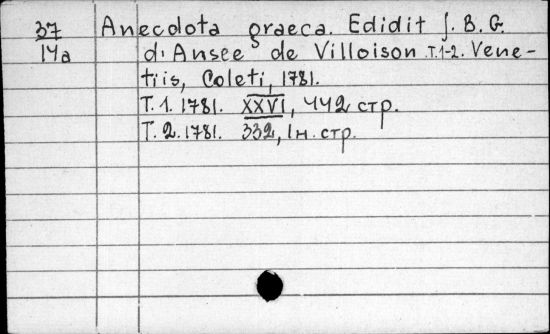 37 Anecdota graeca. Edidit J. B. G.
14a d'Ansee de Villoison T.1-2. Vene-
tiis, Coleti, 1781.
T. 1. 1781. XXVI, 442 стр.
T. 2. 1781. 332, 1н. стр.